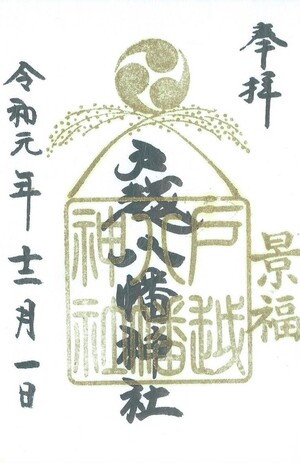 奉拝
景福
戸越八幡神社
戸越八幡神社
令和元年十二月一日